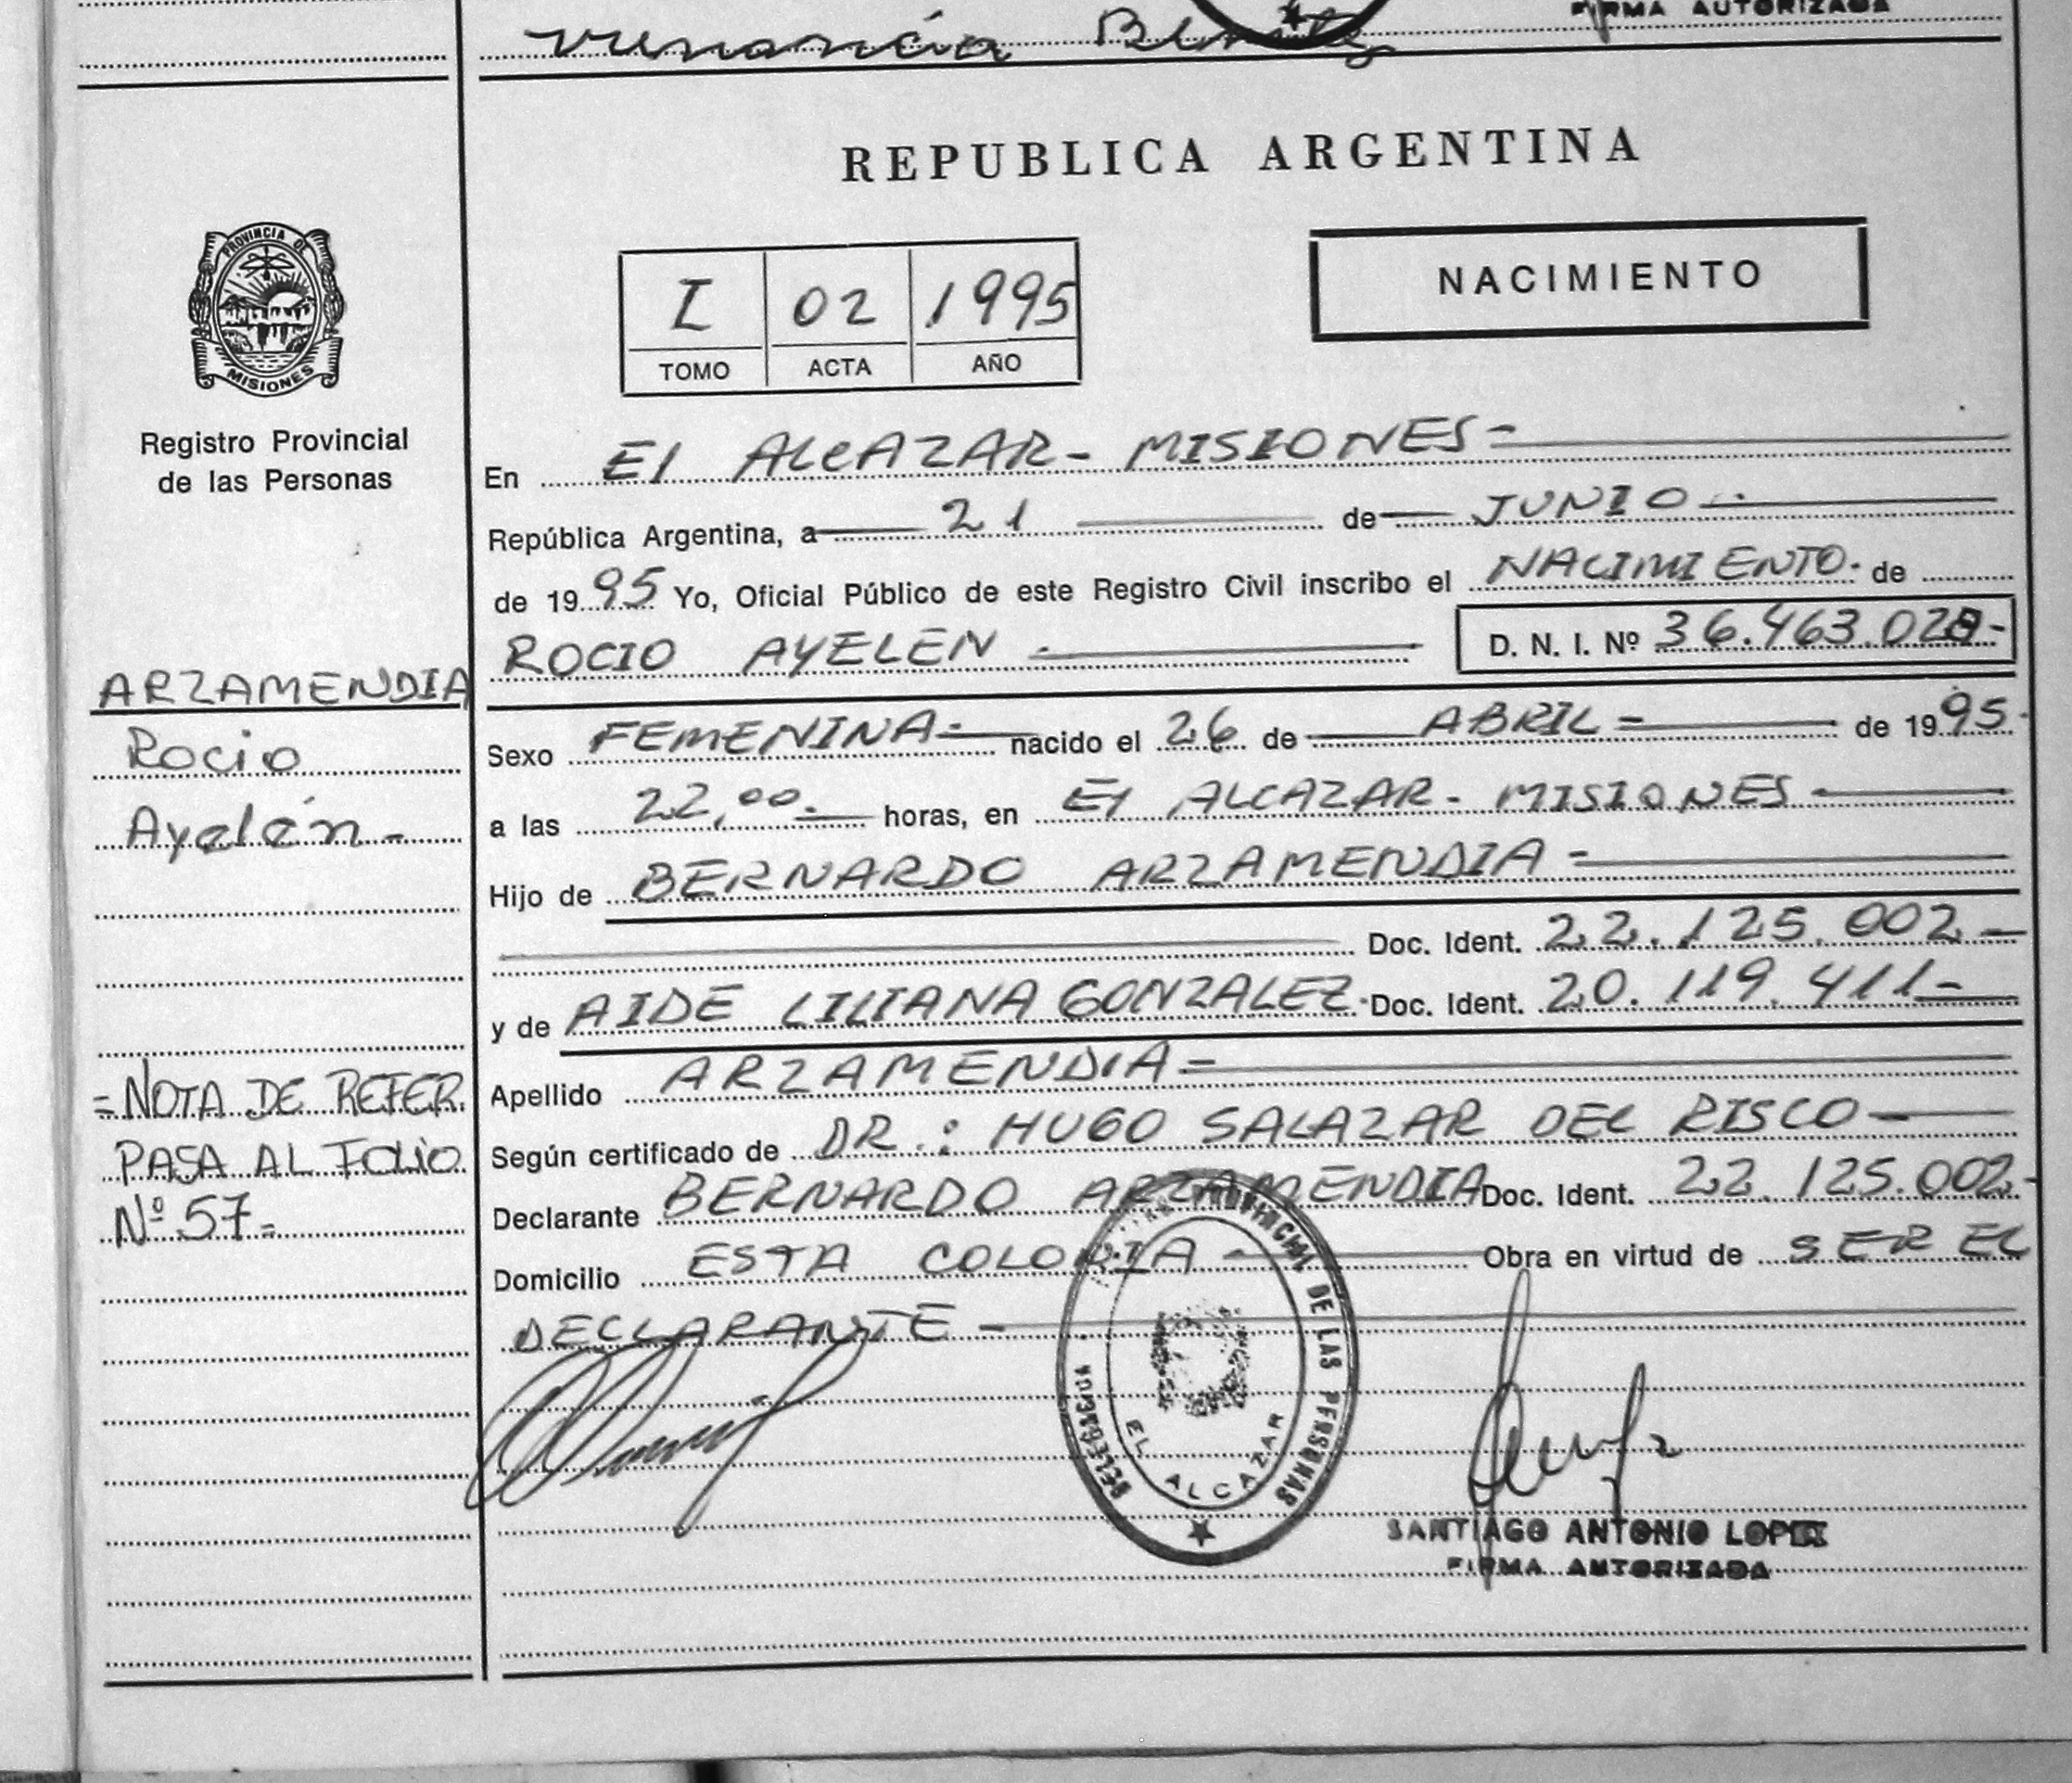 FIRMA AUTORIZADA
REPUBLICA ARGENTINA
PROVINCIA DE
MISIONES
Registro Provincial
de las Personas
I 02 1995
TOMO ACTA AÑO
NACIMIENTO
En El ALCAZAR - MISIONES -
República Argentina, a 21 de JUNIO
de 1995 Yo, Oficial Público de este Registro Civil inscribo el NACIMIENTO. de
ROCIO AYELEN D. N. I. Nº
ARZAMENDIA
Rocio
Ayelén -
Sexo FEMENINA nacido el 26 de ABRIL de 1995.
a las 22,00 horas, en El ALCAZAR - MISIONES
Hijo de BERNARDO ARZAMENDIA
Doc. Ident. 22.125.002
y de AIDE LILIANA GONZALEZ Doc. Ident. 20.119.411
Apellido ARZAMENDIA
Según certificado de DR.: HUGO SALAZAR DEL RISCO
Declarante BERNARDO ARZAMENDIA Doc. Ident. 22.125.002
Domicilio ESTA COLONIA Obra en virtud de SER EL
DECLARANTE
= NOTA DE REFER.
PASA AL FOLIO
Nº 57 =
PROVINCIAL DE LAS PERSONAS
DELEGACION
EL ALCAZAR
SANTIAGO ANTONIO LOPEZ
FIRMA AUTORIZADA